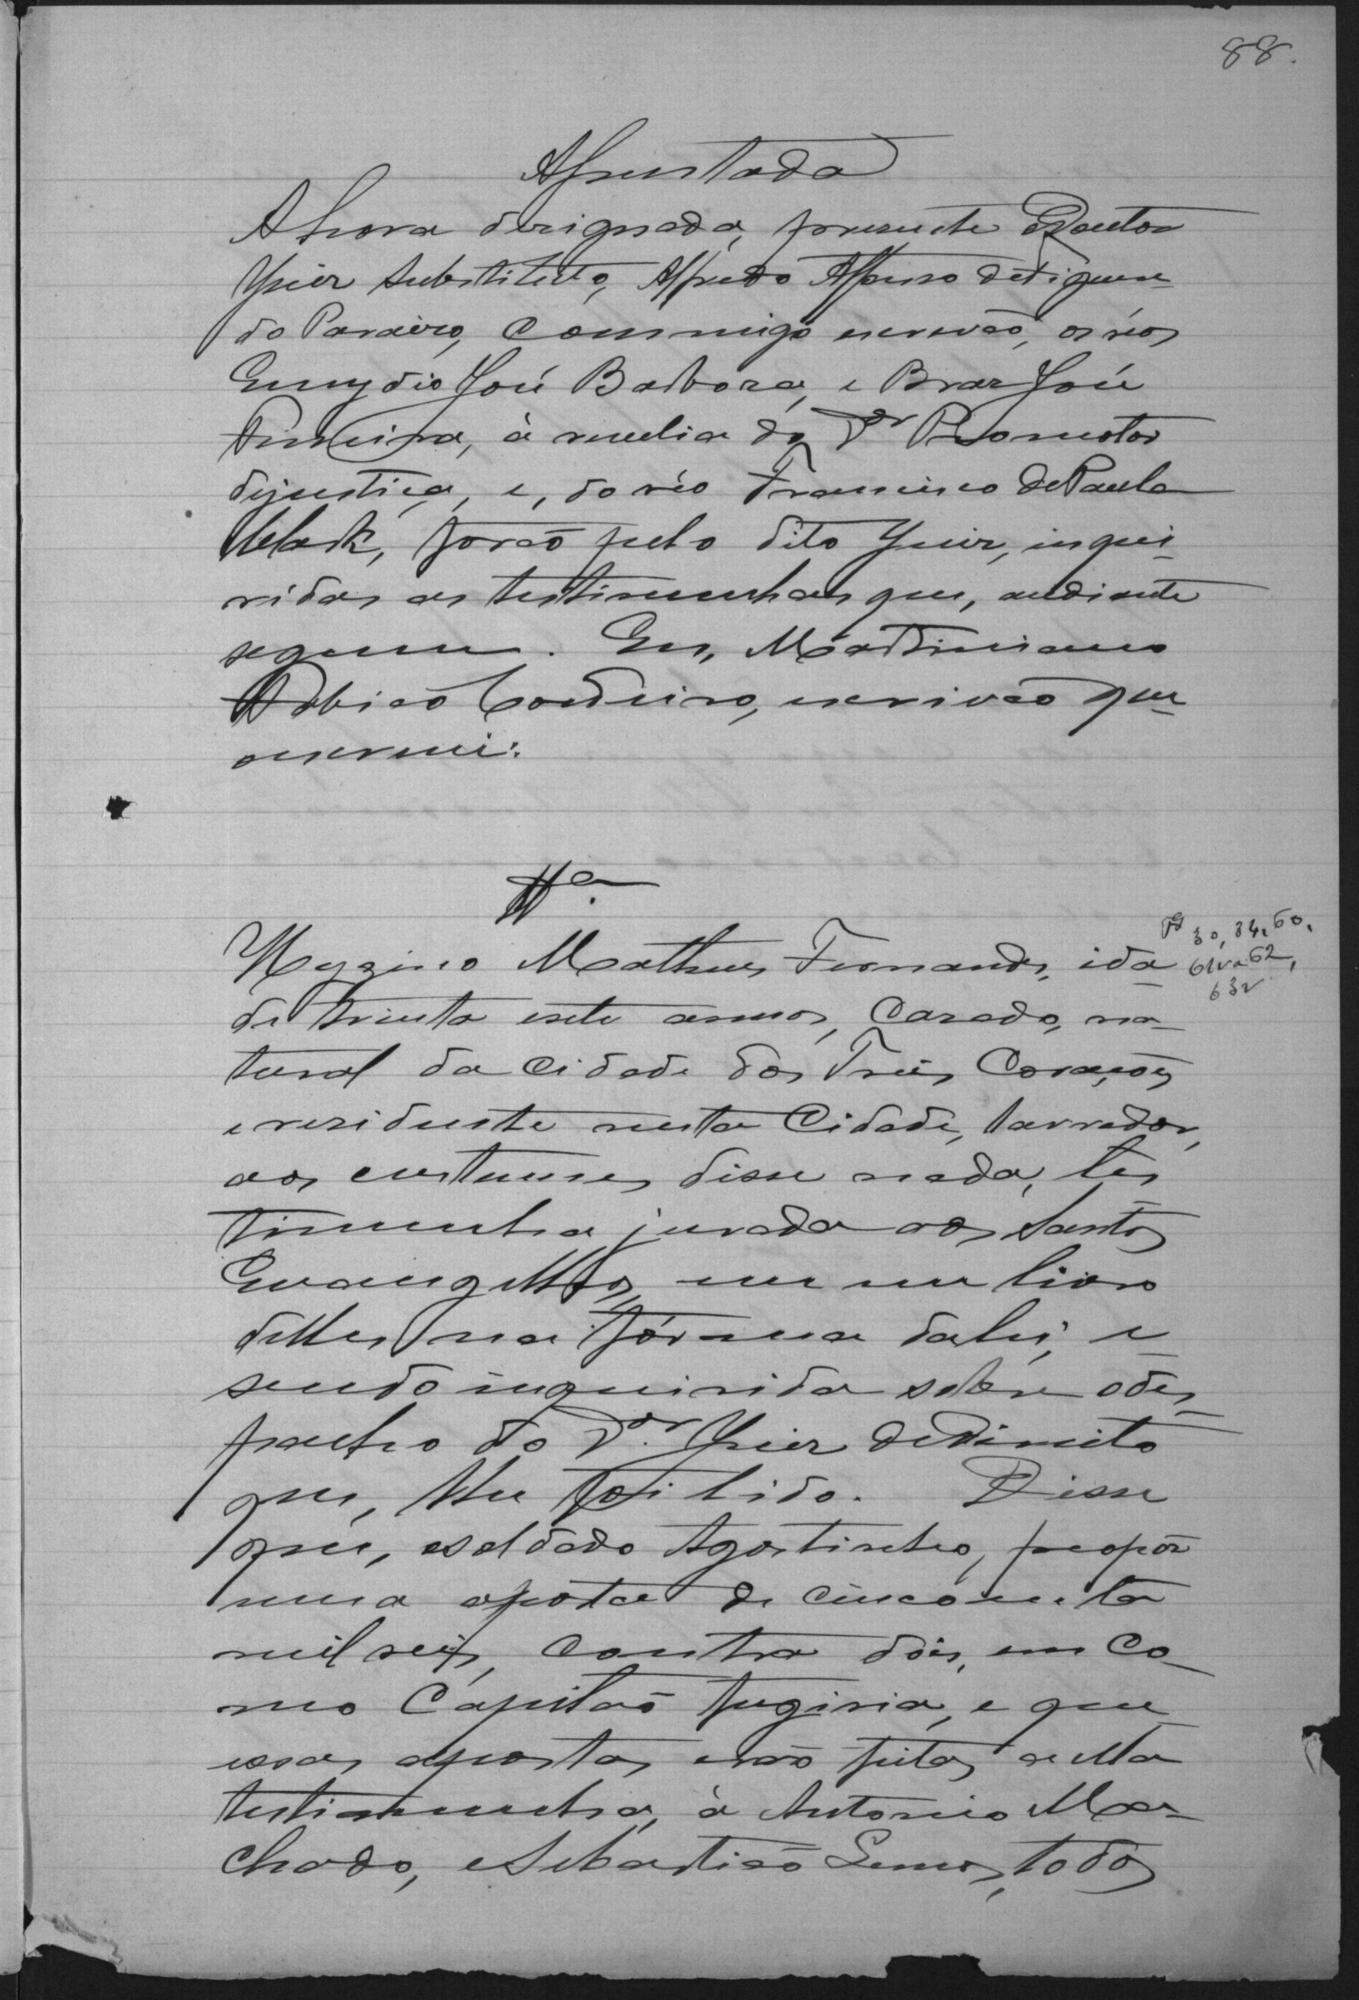 88.
Assentada
A hora designada, presente o Doutor
Juiz substituto, Alfredo Affonso de Figueire-
do Paraizo, commigo escrevão, os réos
Emygdio José Barbosa, e Braz José
Ferreira, à revelia do Dr Promotor
de justiça, e, do réo Francisco de Paula
forão pelo dito Juiz, inqui-
ridas as testimunhas que, adiante
seguem. Eu, Martiniano
Cordeiro, escrivão que
escrevi:
1ª.
Fs 30, 34, 60,
61v a 62,
63v
Hygino Matheus Fernandes, ida-
de trinta esete annos, Casado, na-
tural da Cidade dos Tres Corações
e residente nesta Cidade, lavrador,
aos custumes disse nada, tes
timunha jurada aos Santos
Evangelhos, em um livro
delles na fórma da lei, e
sendo inquirida sobre odes-
pacho do Dr. Juiz de Direito
que, lhe foi lido. Disse
que, osoldado Agostinho, propôz
uma aposta de cincoenta
mil reis, contra dois, em Co-
mo Capitão fugiria, e que
essas apostas erão feitas a ella
testimunha, à Antonio Ma-
chado, e Sebastião Lemos, todos